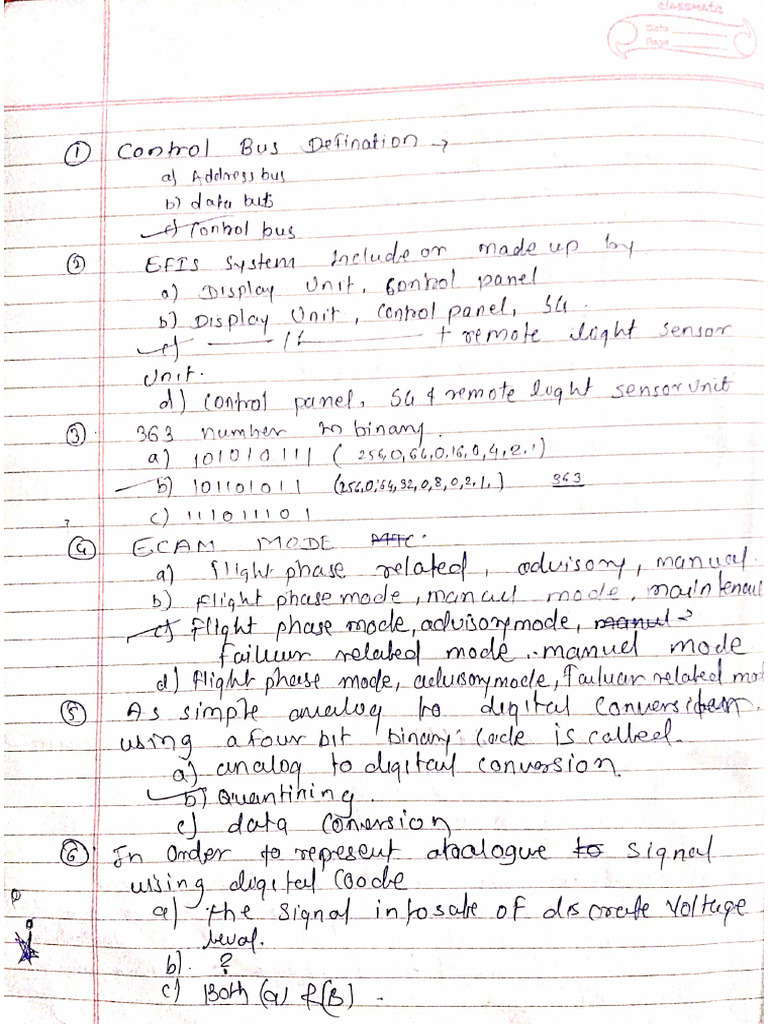 classmate
Date
Page
① Control Bus Defination →
a) Address bus
b) data buts
c) Conhol bus
② EFIS System Include or made up by
a) Display Unit, Control panel
b) Display Unit, Control panel, SG.
c) —— 11 —— + remote light sensor
Unit.
d) Control panel, SG & remote light sensor unit
③ 363 number in binary.
a) 101010111 ( 256,0,64,0,16,0,4,2,1)
b) 101101011 (256,0,64,32,0,8,0,2,1,) 363
c) 111011101
?
④ ECAM MODE
a) flight phase related, advisory, manual
b) flight phase mode, manuel mode, maintenau
c) flight phase mode, advisory mode, manuel →
failuur related mode.. manuel mode
d) flight phase mode, advisory mode, failuar related mod
⑤ As simple analog to digital conversi
using a four bit binary code is called.
a) analog to digital conversion.
b) Quantining.
c) data conversion
⑥ In order to represent ataalogue to signal
using digital coode
a) the signal into sale of discreate voltage
leval.
b). ?
c) Both (a) & (B).